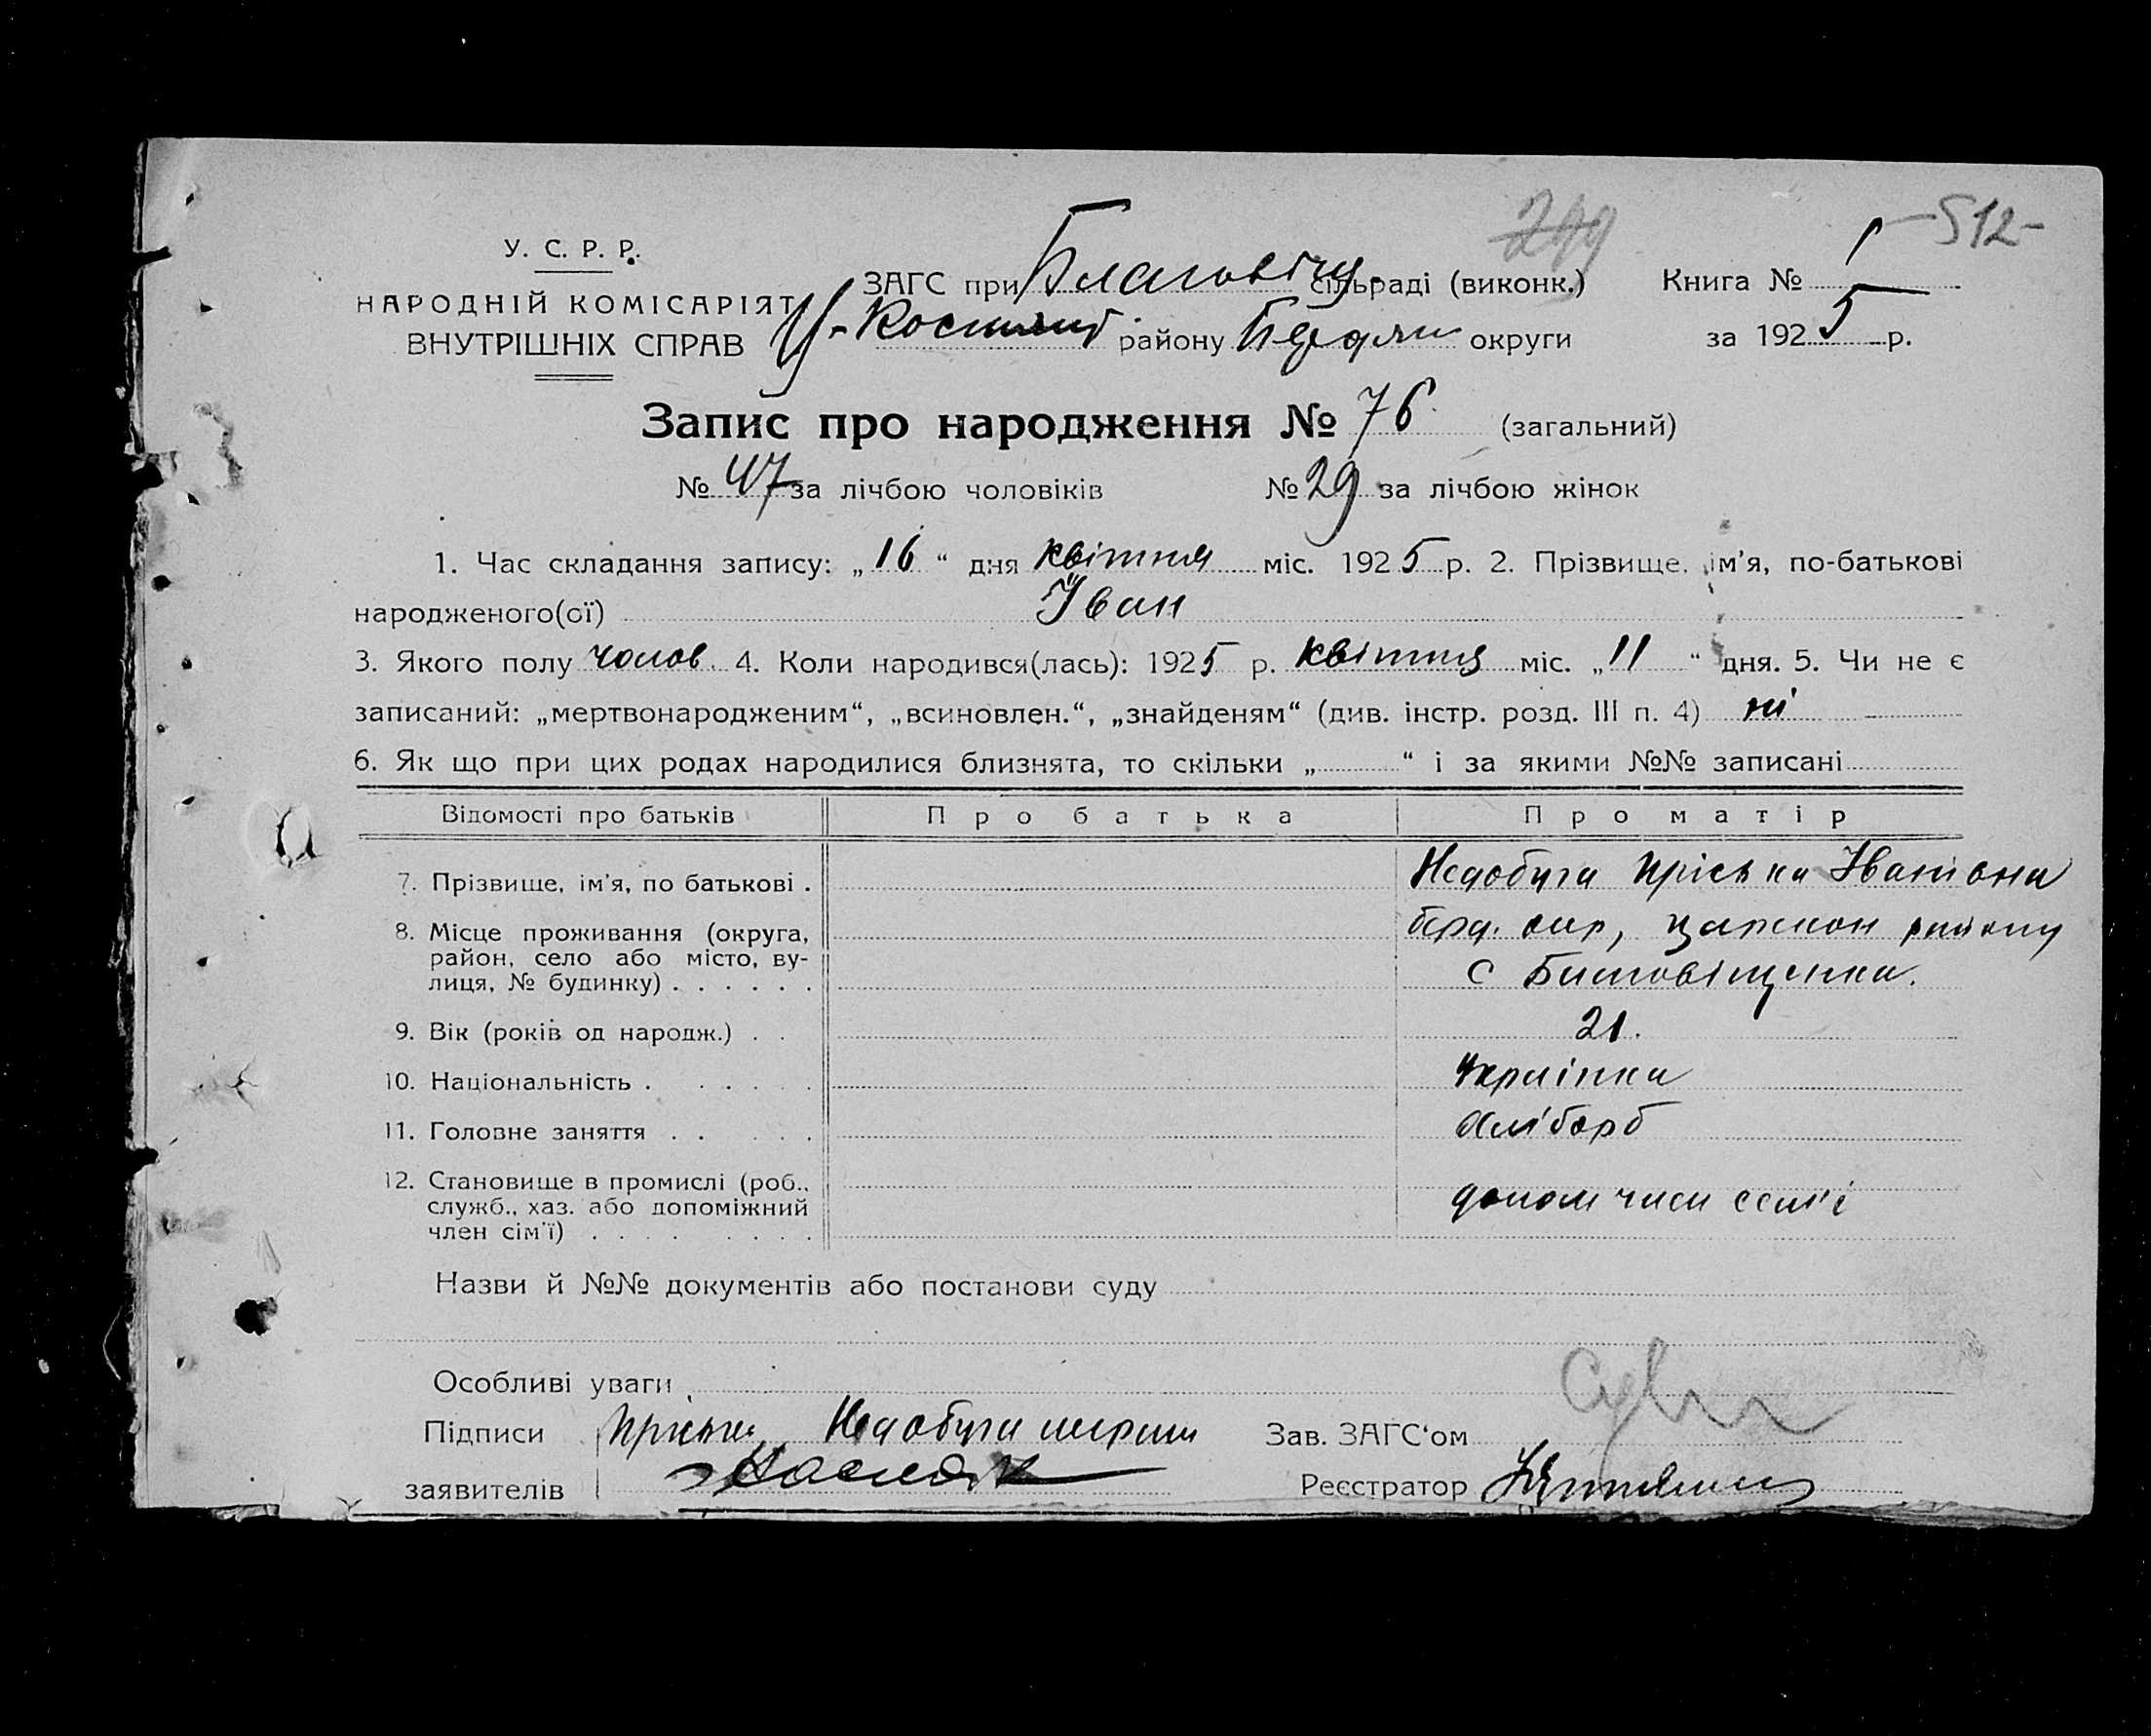 -512-
У. С. Р. Р.
НАРОДНІЙ КОМІСАРІЯТ
ВНУТРІШНІХ СПРАВ
ЗАГС при Благовіщ. сільраді (виконк.)
Книга № 1
району округи
за 1925 р.
Запис про народження № 76 (загальний)
№ 47 за лічбою чоловіків № 29 за лічбою жінок
1. Час складання запису: „16“ дня квітня міс. 1925 р. 2. Прізвище, ім'я, по-батькові
народженого(ої) Іван
3. Якого полу чолов. 4. Коли народився(лась): 1925 р. квітня міс. „11“ дня. 5. Чи не є
записаний: „мертвонародженим“, „всиновлен.“, „знайденям“ (див. інстр. розд. III п. 4) ні
6. Як що при цих родах народилися близнята, то скільки „ “ і за якими №№ записані
Відомості про батьків Про батька Про матір
7. Прізвище, ім'я, по батькові . Недобуга Пріська Іванівна
8. Місце проживання (округа, район, село або місто, вулиця, № будинку) . . . . . . Берд. окр, району
с Благовіщенка.
9. Вік (років од народж.) . . 21.
10. Національність . . . . . Українка
11. Головне заняття . . . . . Хлібороб
12. Становище в промислі (роб.,
служб., хаз. або допоміжний
член сім'ї) . . . . . . . . допом член сем'ї
Назви й №№ документів або постанови суду
Особливі уваги
Підписи Пріська Недобуга
заявителів
Зав. ЗАГС'ом
Реєстратор